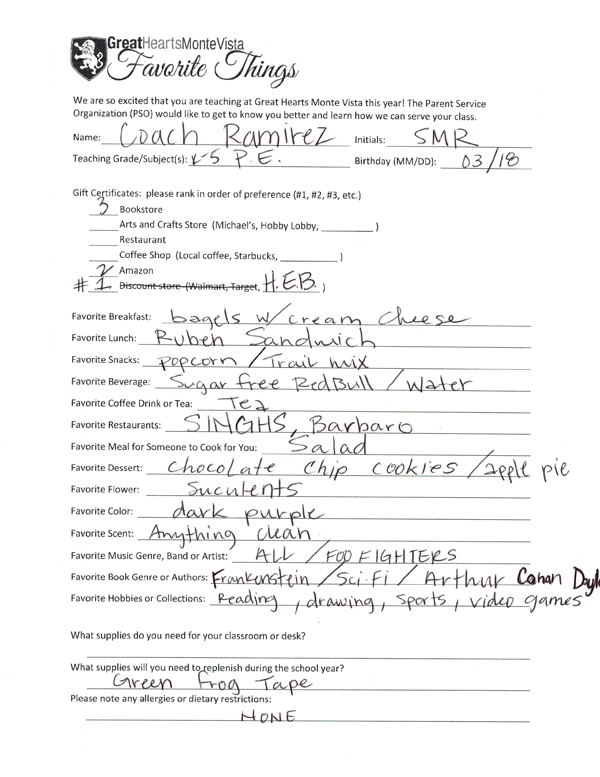 GreatHeartsMonteVista
Favorite Things
We are so excited that you are teaching at Great Hearts Monte Vista this year! The Parent Service
Organization (PSO) would like to get to know you better and learn how we can serve your class.
Name: Coach Ramirez Initials: SMR
Teaching Grade/Subject(s): K-5 P.E. Birthday (MM/DD): 03/18
Gift Certificates: please rank in order of preference (#1, #2, #3, etc.)
3 Bookstore
____ Arts and Crafts Store (Michael's, Hobby Lobby, __________ )
____ Restaurant
____ Coffee Shop (Local coffee, Starbucks, __________ )
2 Amazon
#1 Discount store (Walmart, Target, H.E.B. )
Favorite Breakfast: bagels w/cream cheese
Favorite Lunch: Ruben Sandwich
Favorite Snacks: popcorn / Trail mix
Favorite Beverage: Sugar free RedBull / Water
Favorite Coffee Drink or Tea: Tea
Favorite Restaurants: SINGHS, Barbaro
Favorite Meal for Someone to Cook for You: Salad
Favorite Dessert: Chocolate Chip cookies / apple pie
Favorite Flower: Suculents
Favorite Color: dark purple
Favorite Scent: Anything clean
Favorite Music Genre, Band or Artist: ALL / FOO FIGHTERS
Favorite Book Genre or Authors: Frankenstein / Sci.Fi / Arthur Conan Doyle
Favorite Hobbies or Collections: Reading, drawing, sports, video games
What supplies do you need for your classroom or desk?
What supplies will you need to replenish during the school year?
Green Frog Tape
Please note any allergies or dietary restrictions:
NONE